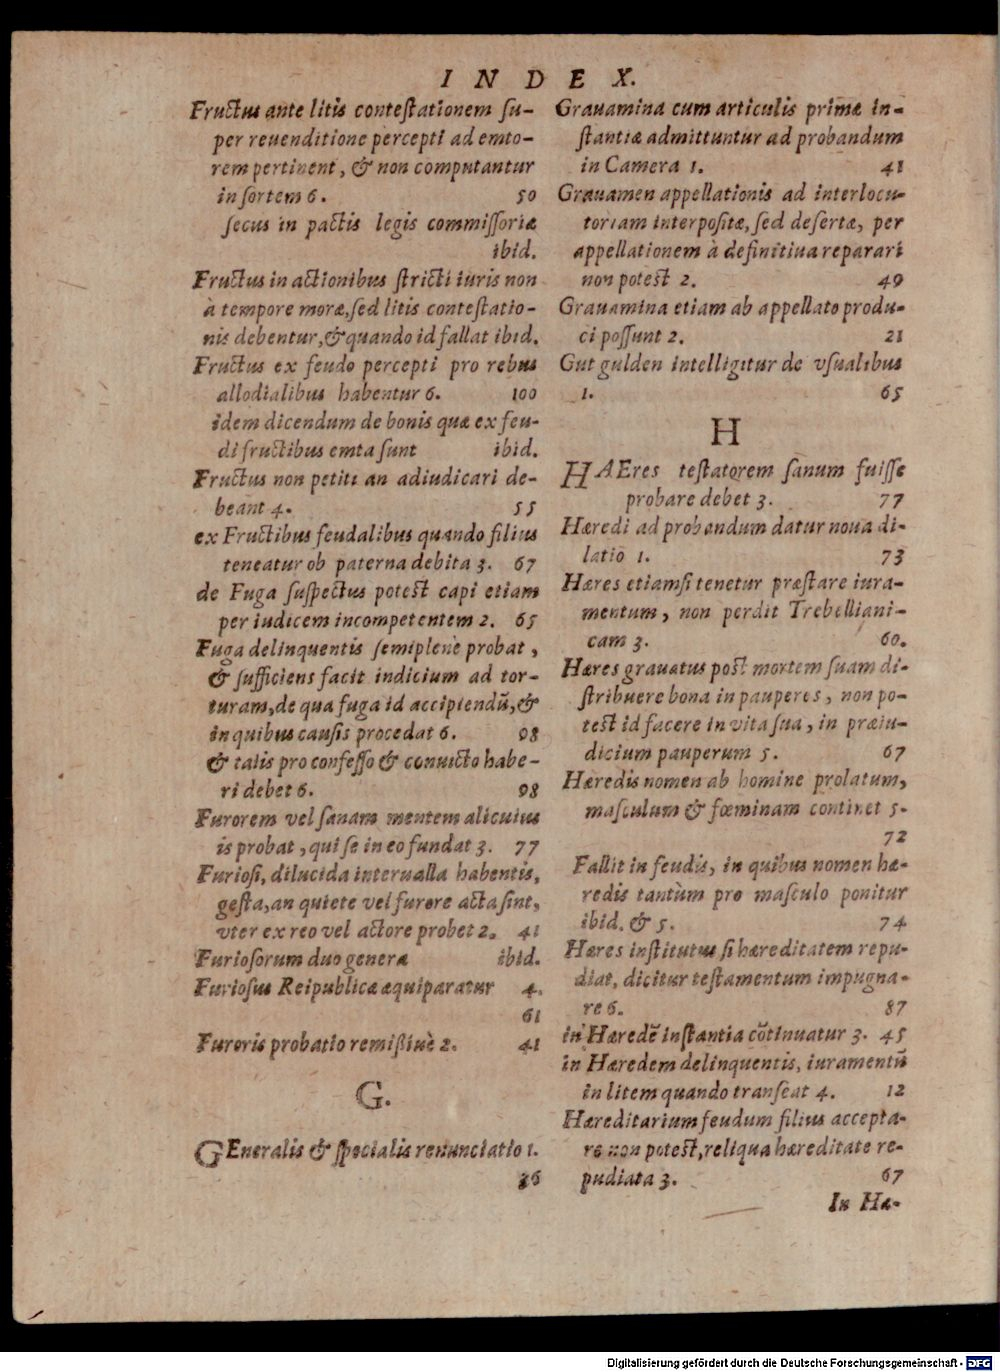 INDEX.
Fructus ante litis contestationem su-
per reuenditione percepti ad emto-
rem pertinent, & non computantur
in sortem 6. 50
secus in pactis legis commissoriæ
ibid.
Fructus in actionibus stricti iuris non
à tempore moræ, sed litis contestatio-
nis debentur, & quando id fallat ibid.
Fructus ex feudo percepti pro rebus
allodialibus habentur 6. 100
idem dicendum de bonis quæ ex feu-
di fructibus emta sunt ibid.
Fructus non petiti an adiudicari de-
beant 4. 55
ex Fructibus feudalibus quando filius
teneatur ob paterna debita 3. 67
de Fuga suspectus potest capi etiam
per iudicem incompetentem 2. 65
Fuga delinquentis semiplenè probat,
& sufficiens facit indicium ad tor-
turam, de qua fuga id accipiendũ, &
in quibus causis procedat 6. 98
& talis pro confesso & conuicto habe-
ri debet 6. 98
Furorem vel sanam mentem alicuius
is probat, qui se in eo fundat 3. 77
Furiosi, dilucida interualla habentis,
gesta, an quiete vel furore acta sint,
vter ex reo vel actore probet 2. 41
Furiosorum duo genera ibid.
Furiosus Reipublicæ æquiparatur 4.
61
Furoris probatio remißiuè 2. 41
G.
GEneralis & specialis renunciatio 1.
36
Grauamina cum articulis primæ in-
stantiæ admittuntur ad probandum
in Camera 1. 41
Grauamen appellationis ad interlocu-
toriam interpositæ, sed desertæ, per
appellationem à definitiua reparari
non potest 2. 49
Grauamina etiam ab appellato produ-
ci possunt 2. 21
Gut gulden intelligitur de vsualibus
1. 65
H
HAEres testatorem sanum fuisse
probare debet 3. 77
Hæredi ad probandum datur noua di-
latio 1. 73
Hæres etiamsi tenetur præstare iura-
mentum, non perdit Trebelliani-
cam 3. 60.
Hæres grauatus post mortem suam di-
stribuere bona in pauperes, non po-
test id facere in vita sua, in præiu-
dicium pauperum 5. 67
Hæredis nomen ab homine prolatum,
masculum & fœminam continet 5.
72
Fallit in feudis, in quibus nomen hæ-
redis tantùm pro masculo ponitur
ibid. & 5. 74
Hæres institutus si hæreditatem repu-
diat, dicitur testamentum impugna-
re 6. 87
in Hæredẽ instantia cõtinuatur 3. 45
in Hæredem delinquentis, iuramentũ
in litem quando transeat 4. 12
Hæreditarium feudum filius accepta-
re non potest, reliqua hæreditate re-
pudiata 3. 67
In Hæ-
Digitalisierung gefördert durch die Deutsche Forschungsgemeinschaft - DFG